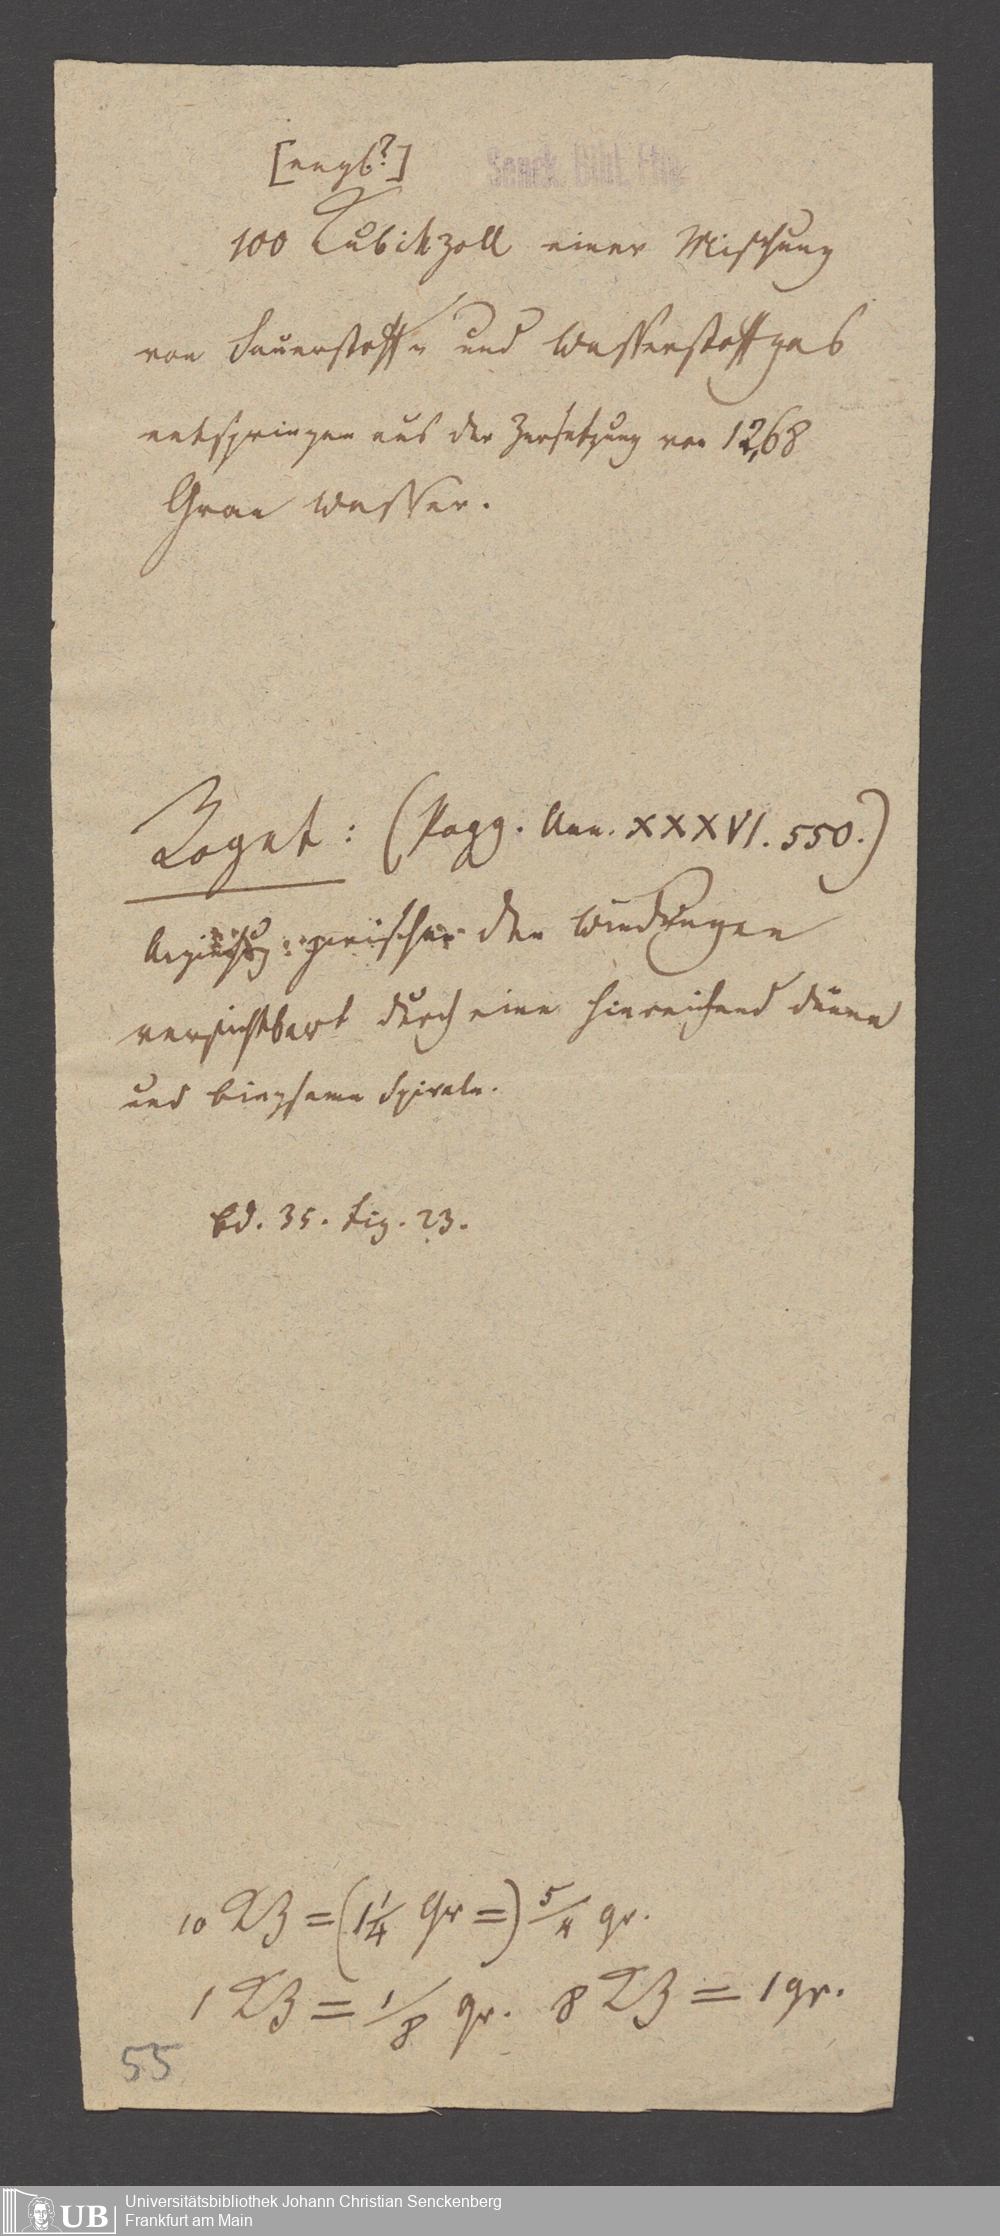 [engl?] Senck. Bibl. Ffm.
100 Kubikzoll einer Mischung
von Sauerstoff- und Wasserstoffgas
entspringen aus der Zersetzung von 12,68
Gran Wasser.
Roget: (Pogg. Ann. XXXVI. 550.)
Anziehung zwischen den Windungen
versichtbart durch eine hinreichend dünne
und biegsame Spirale.
Bd. 35. Fig. 23.
10 KZ = (1 1/4 Gr =) 5/4 gr.
1 KZ = 1/8 gr. 8 KZ = 1 gr.
55
UB
Universitätsbibliothek Johann Christian Senckenberg
Frankfurt am Main